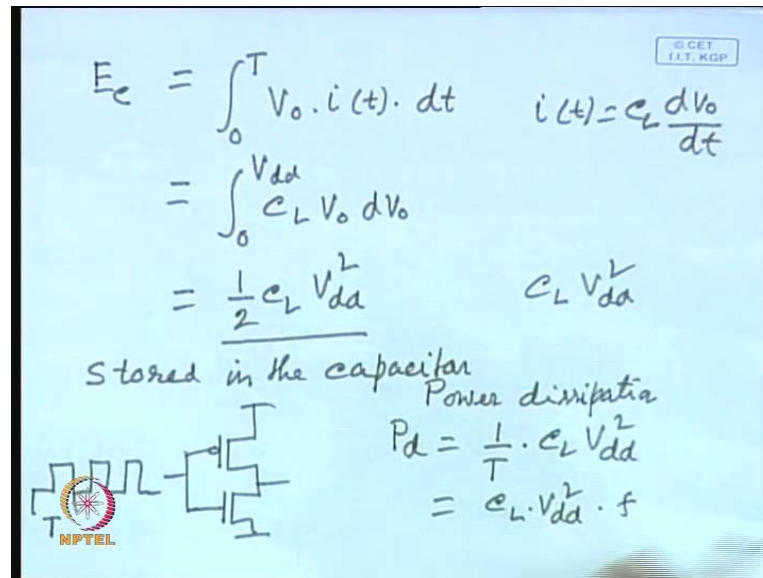 © CET
I.I.T. KGP
E_c = ∫_0^T V_0 . i(t) . dt    i(t) = C_L dV_0/dt
= ∫_0^{Vdd} C_L V_0 dV_0
= 1/2 C_L V_dd^2    C_L V_dd^2
Stored in the capacitor
Power dissipatio
P_d = 1/T . C_L V_dd^2
= C_L . V_dd^2 . f
T
NPTEL